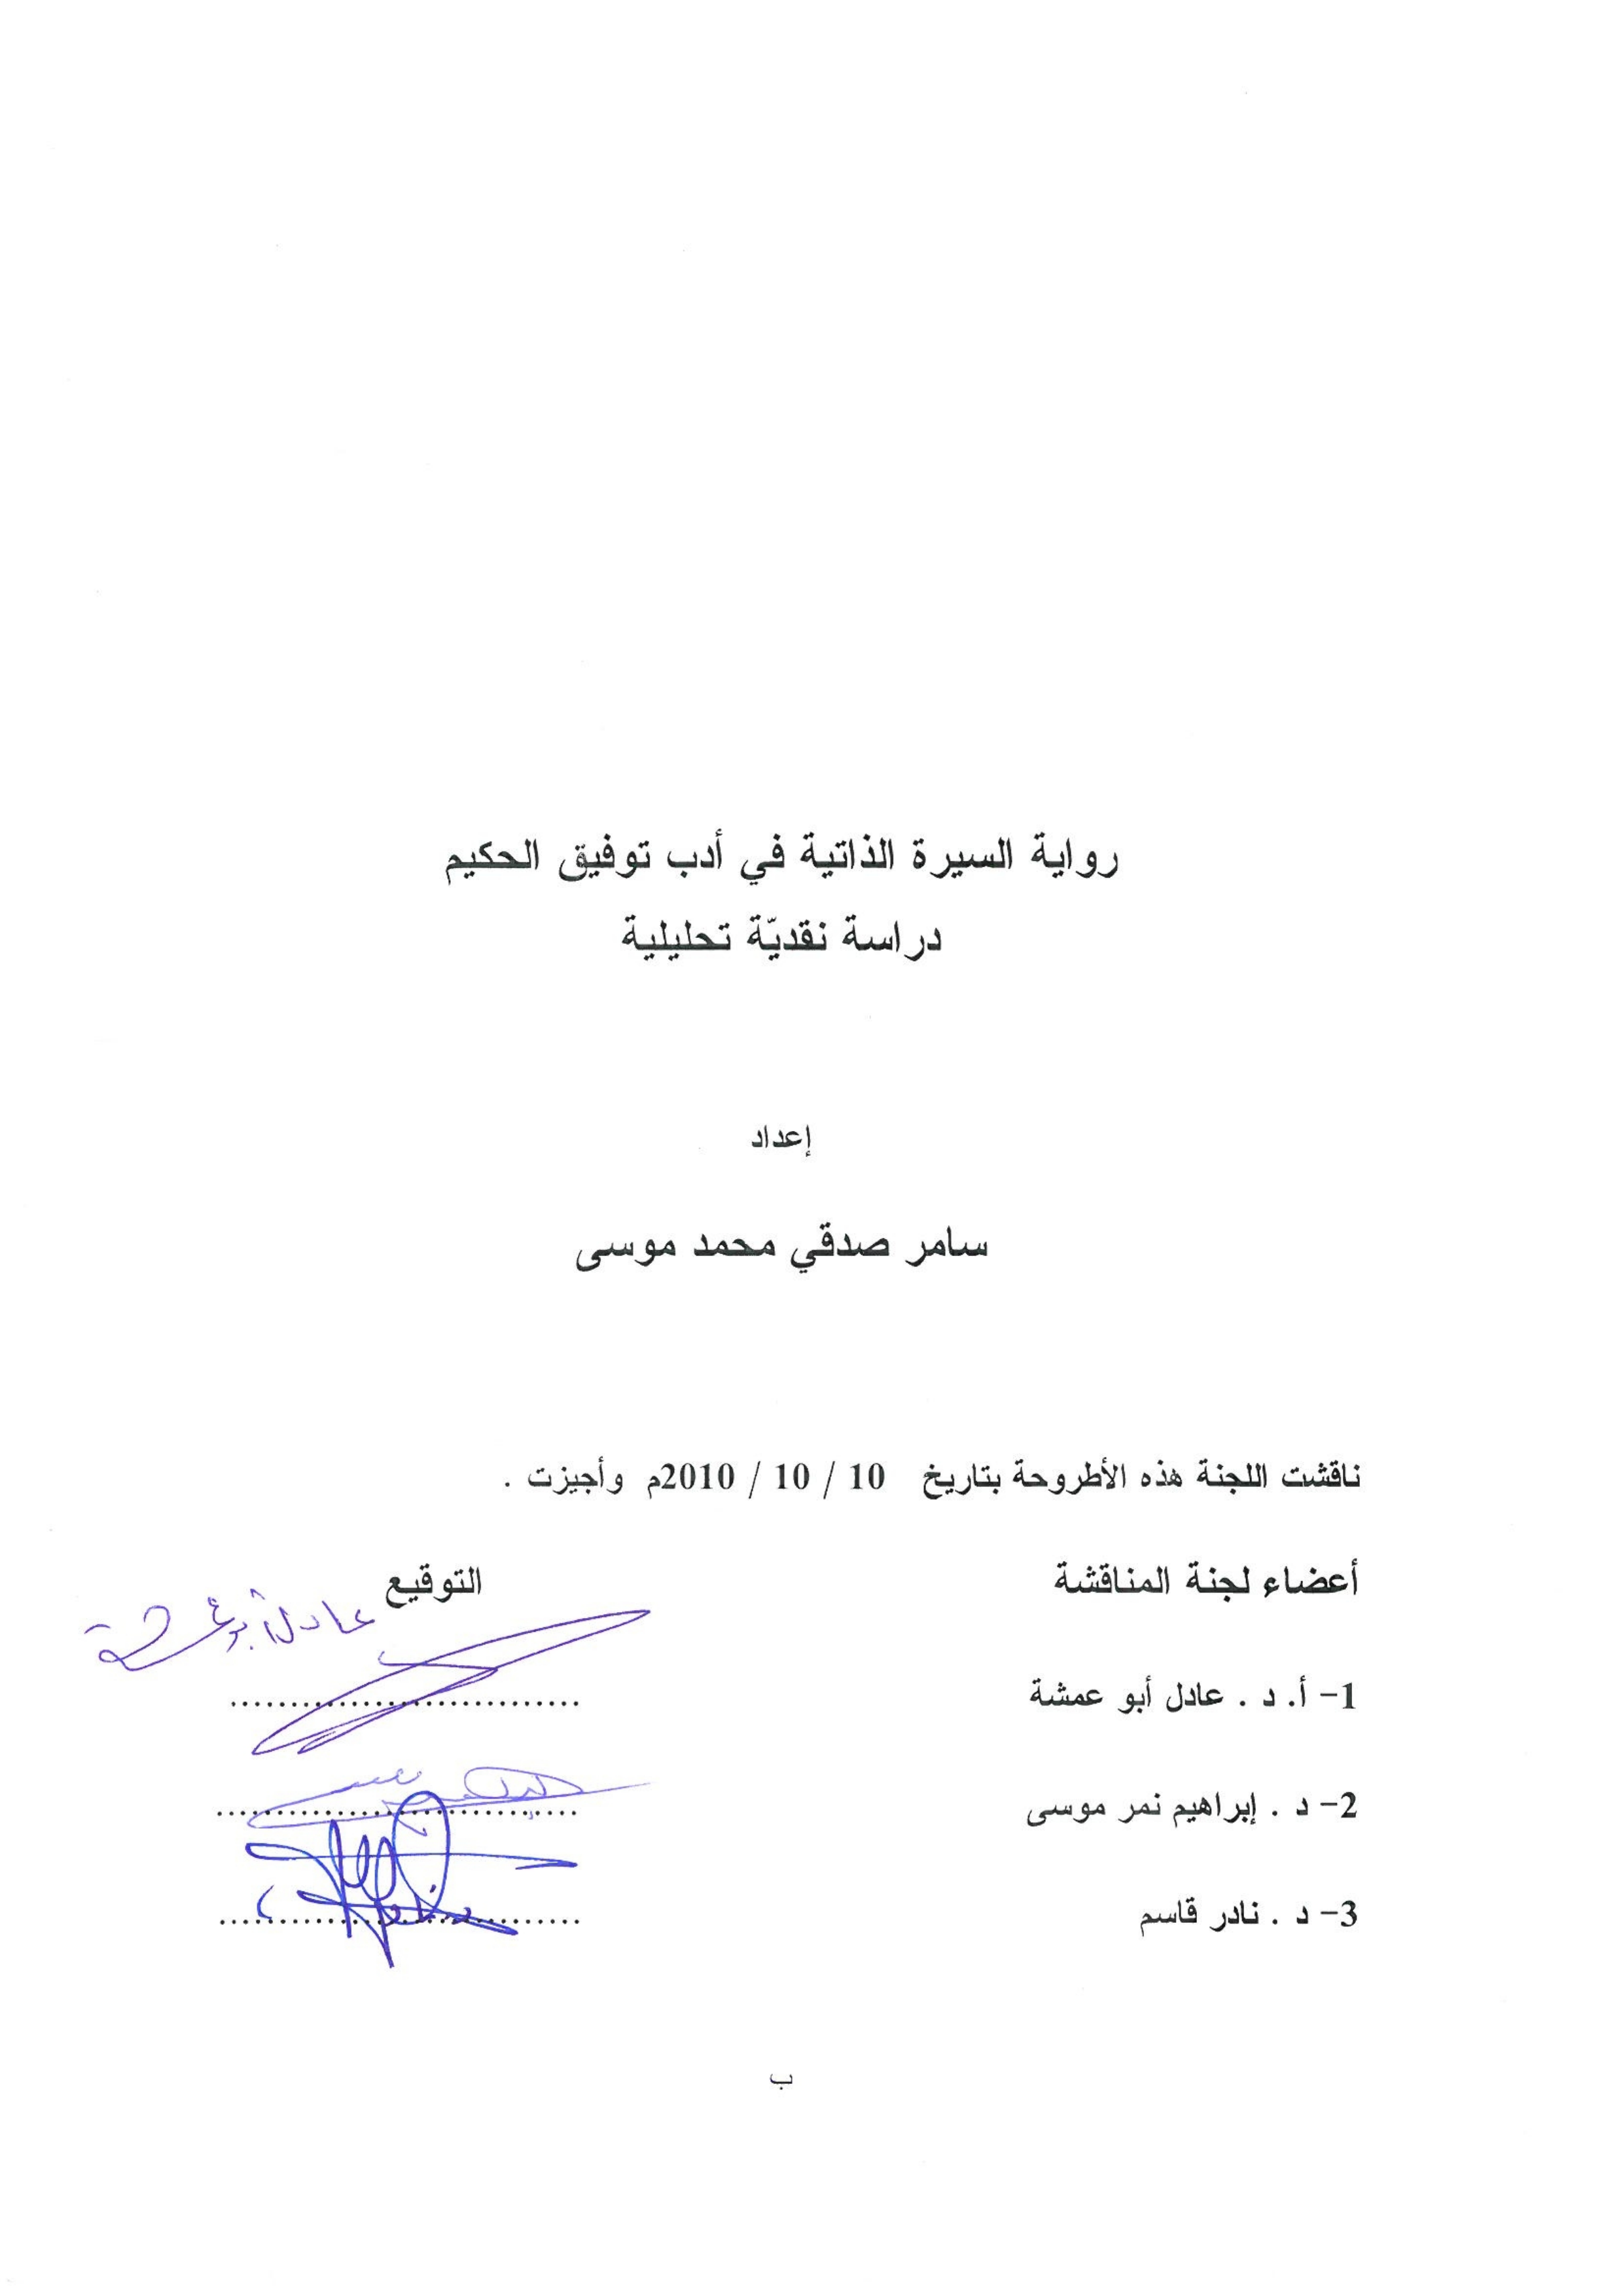 رواية السيرة الذاتية في أدب توفيق الحكيم
دراسة نقديّة تحليلية
إعداد
سامر صدقي محمد موسى
ناقشت اللجنة هذه الأطروحة بتاريخ 10 / 10 / 2010م وأجيزت .
أعضاء لجنة المناقشة التوقيع
عادل أبو عمشة
1- أ. د . عادل أبو عمشة ..............................
2- د . إبراهيم نمر موسى ..............................
3- د . نادر قاسم ..............................
ب